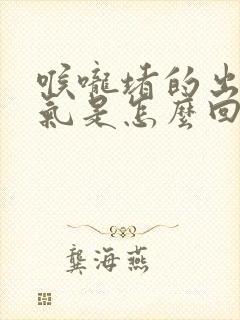 喉嚨堵的出
氣是怎麼回
龔海燕